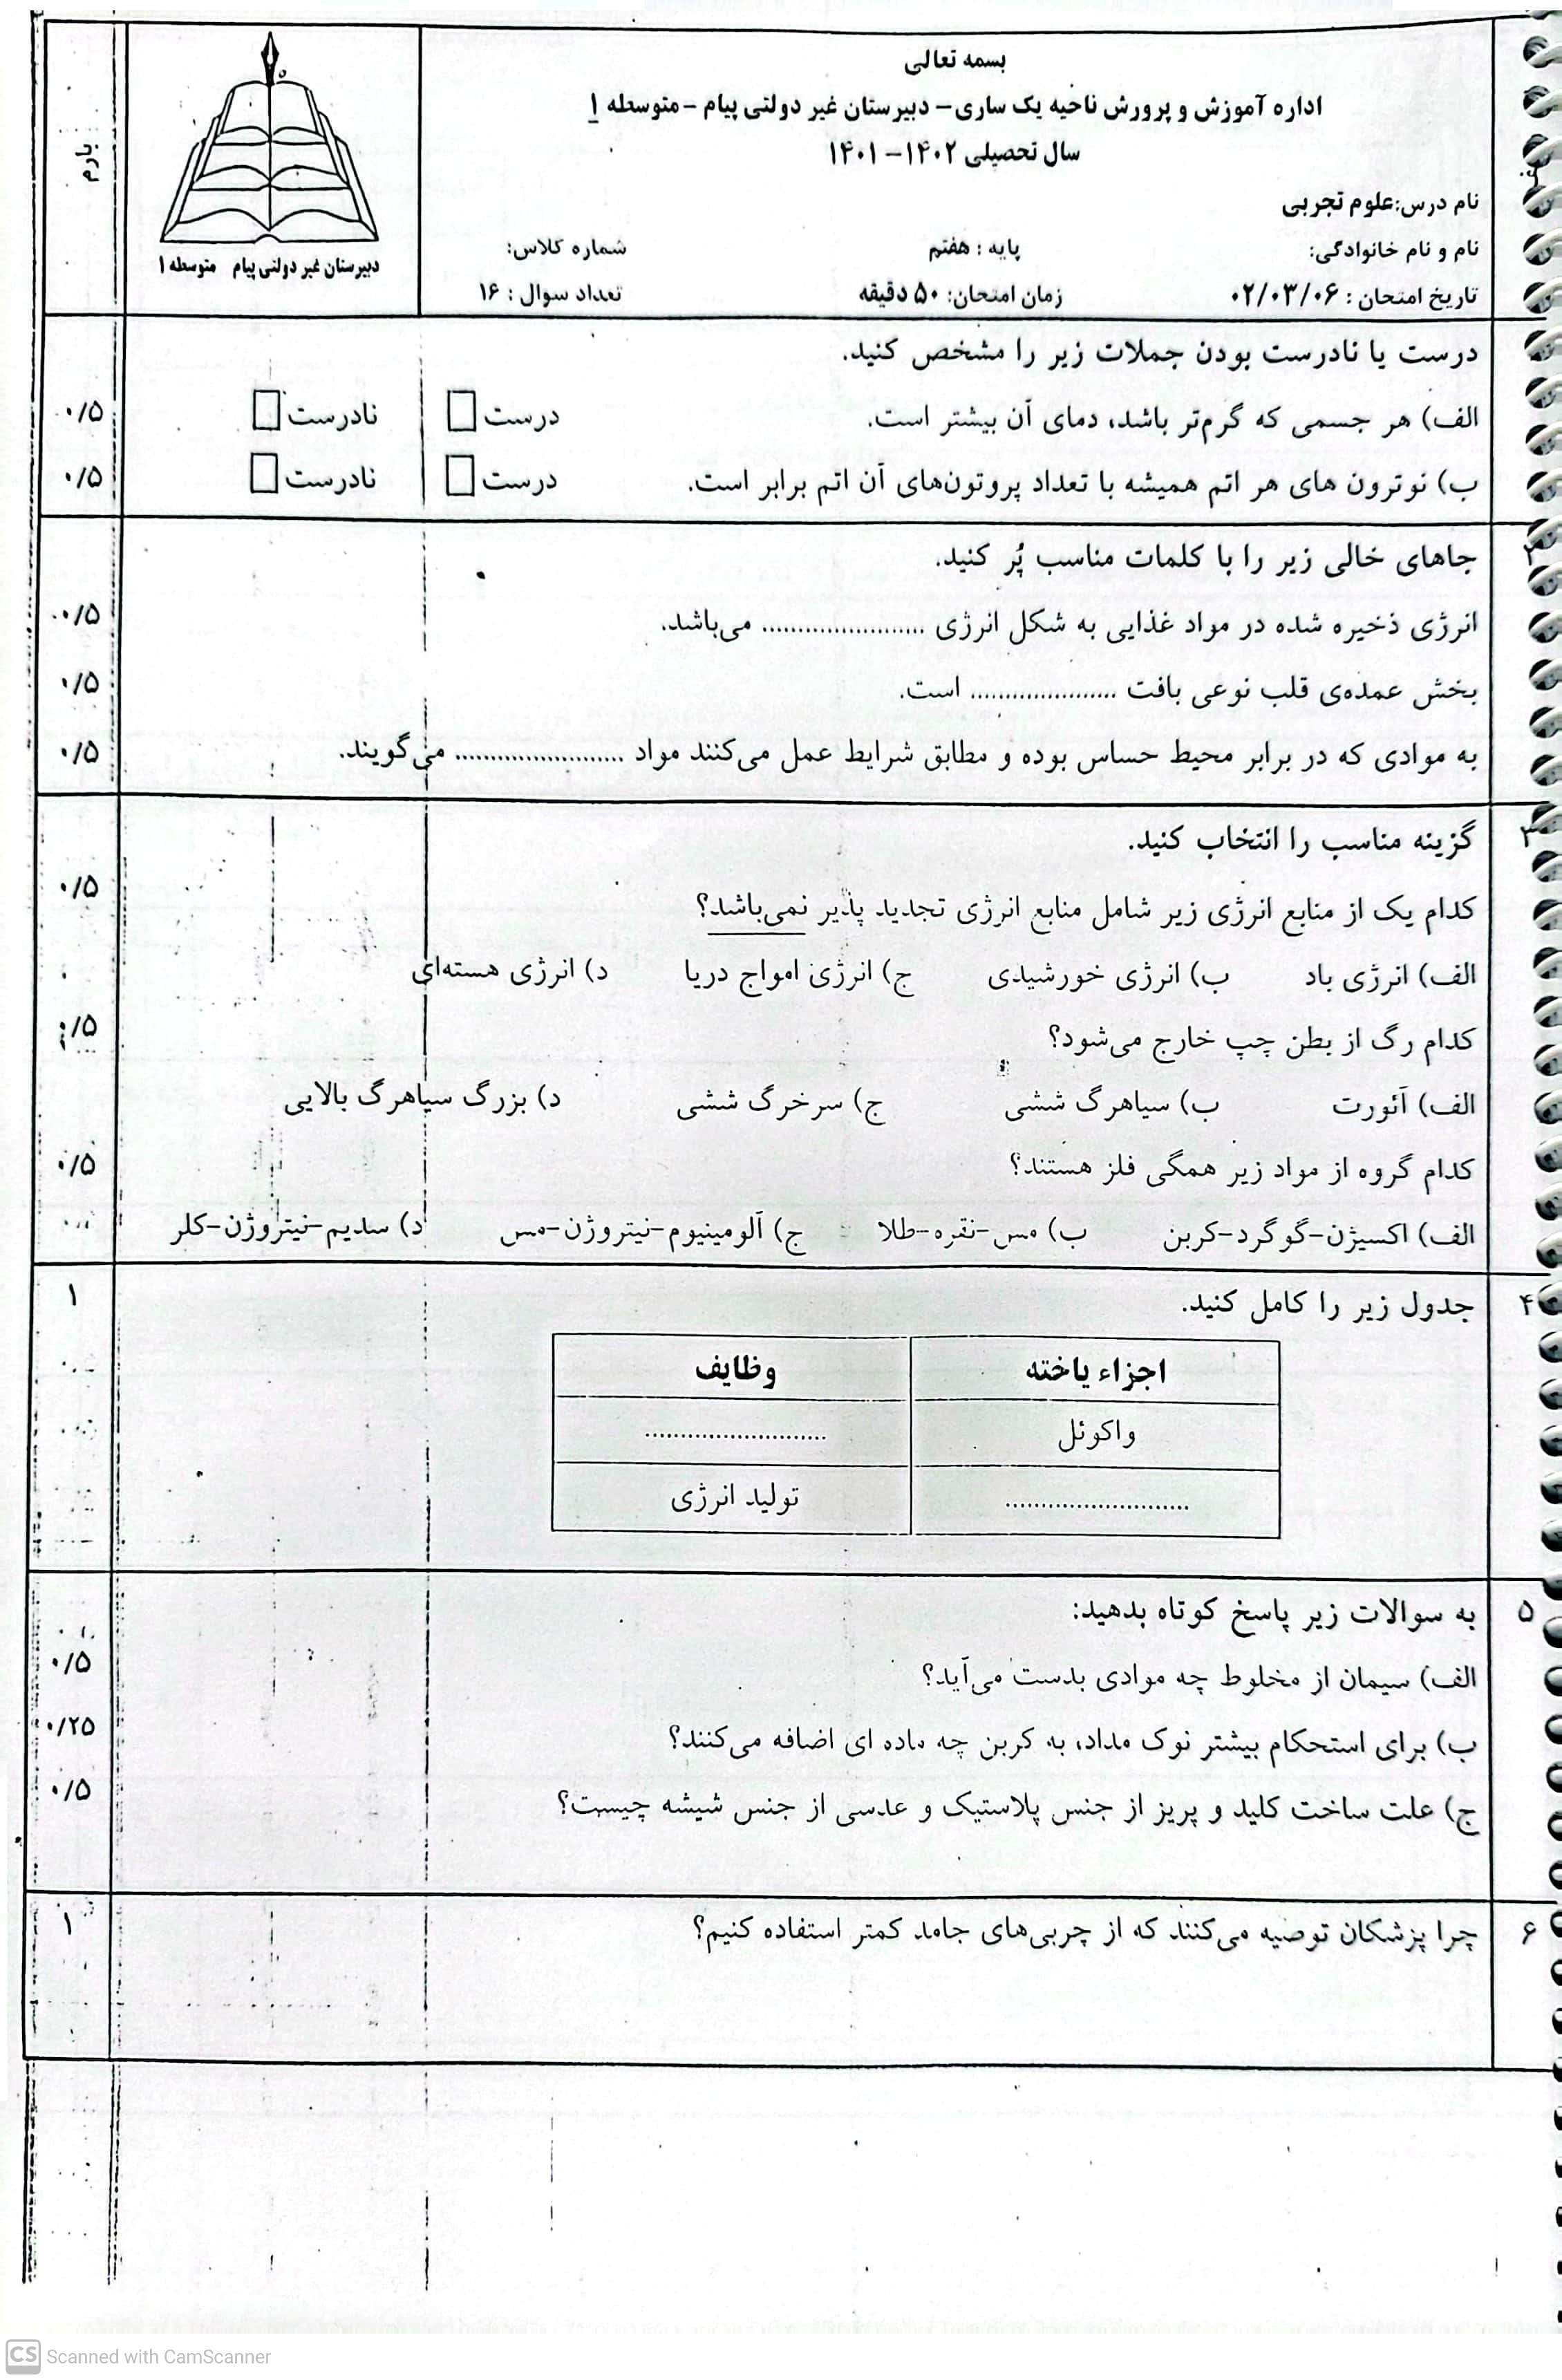 بسمه تعالی
اداره آموزش و پرورش ناحیه یک ساری- دبیرستان غیر دولتی پیام -متوسطه ۱
سال تحصیلی ۱۴۰۲-۱۴۰۱
نام درس:علوم تجربی
نام و نام خانوادگی: پایه : هفتم شماره کلاس:
تاریخ امتحان : ۰۲/۰۳/۰۶ زمان امتحان: ۵۰ دقیقه تعداد سوال : ۱۶
دبیرستان غیر دولتی پیام متوسطه ۱
بارم
درست یا نادرست بودن جملات زیر را مشخص کنید.
الف) هر جسمی که گرم‌تر باشد، دمای آن بیشتر است. درست نادرست ۰/۵
ب) نوترون های هر اتم همیشه با تعداد پروتون‌های آن اتم برابر است. درست نادرست ۰/۵
۲ جاهای خالی زیر را با کلمات مناسب پُر کنید.
انرژی ذخیره شده در مواد غذایی به شکل انرژی ....................... می‌باشد. ۰/۵
بخش عمده‌ی قلب نوعی بافت ..................... است. ۰/۵
به موادی که در برابر محیط حساس بوده و مطابق شرایط عمل می‌کنند مواد ........................ می‌گویند. ۰/۵
۳ گزینه مناسب را انتخاب کنید.
کدام یک از منابع انرژی زیر شامل منابع انرژی تجدید پذیر نمی‌باشد؟ ۰/۵
الف) انرژی باد ب) انرژی خورشیدی ج) انرژی امواج دریا د) انرژی هسته‌ای
کدام رگ از بطن چپ خارج می‌شود؟ ۰/۵
الف) آئورت ب) سیاهرگ ششی ج) سرخرگ ششی د) بزرگ سیاهرگ بالایی
کدام گروه از مواد زیر همگی فلز هستند؟ ۰/۵
الف) اکسیژن-گوگرد-کربن ب) مس-نقره-طلا ج) آلومینیوم-نیتروژن-مس د) سدیم-نیتروژن-کلر
۴ جدول زیر را کامل کنید. ۱
اجزاء یاخته وظایف
واکوئل ..........................
.......................... تولید انرژی
۵ به سوالات زیر پاسخ کوتاه بدهید:
الف) سیمان از مخلوط چه موادی بدست می‌آید؟ ۰/۵
ب) برای استحکام بیشتر نوک مداد، به کربن چه ماده ای اضافه می‌کنند؟ ۰/۲۵
ج) علت ساخت کلید و پریز از جنس پلاستیک و عدسی از جنس شیشه چیست؟ ۰/۵
۶ چرا پزشکان توصیه می‌کنند که از چربی‌های جامد کمتر استفاده کنیم؟ ۱
CS Scanned with CamScanner